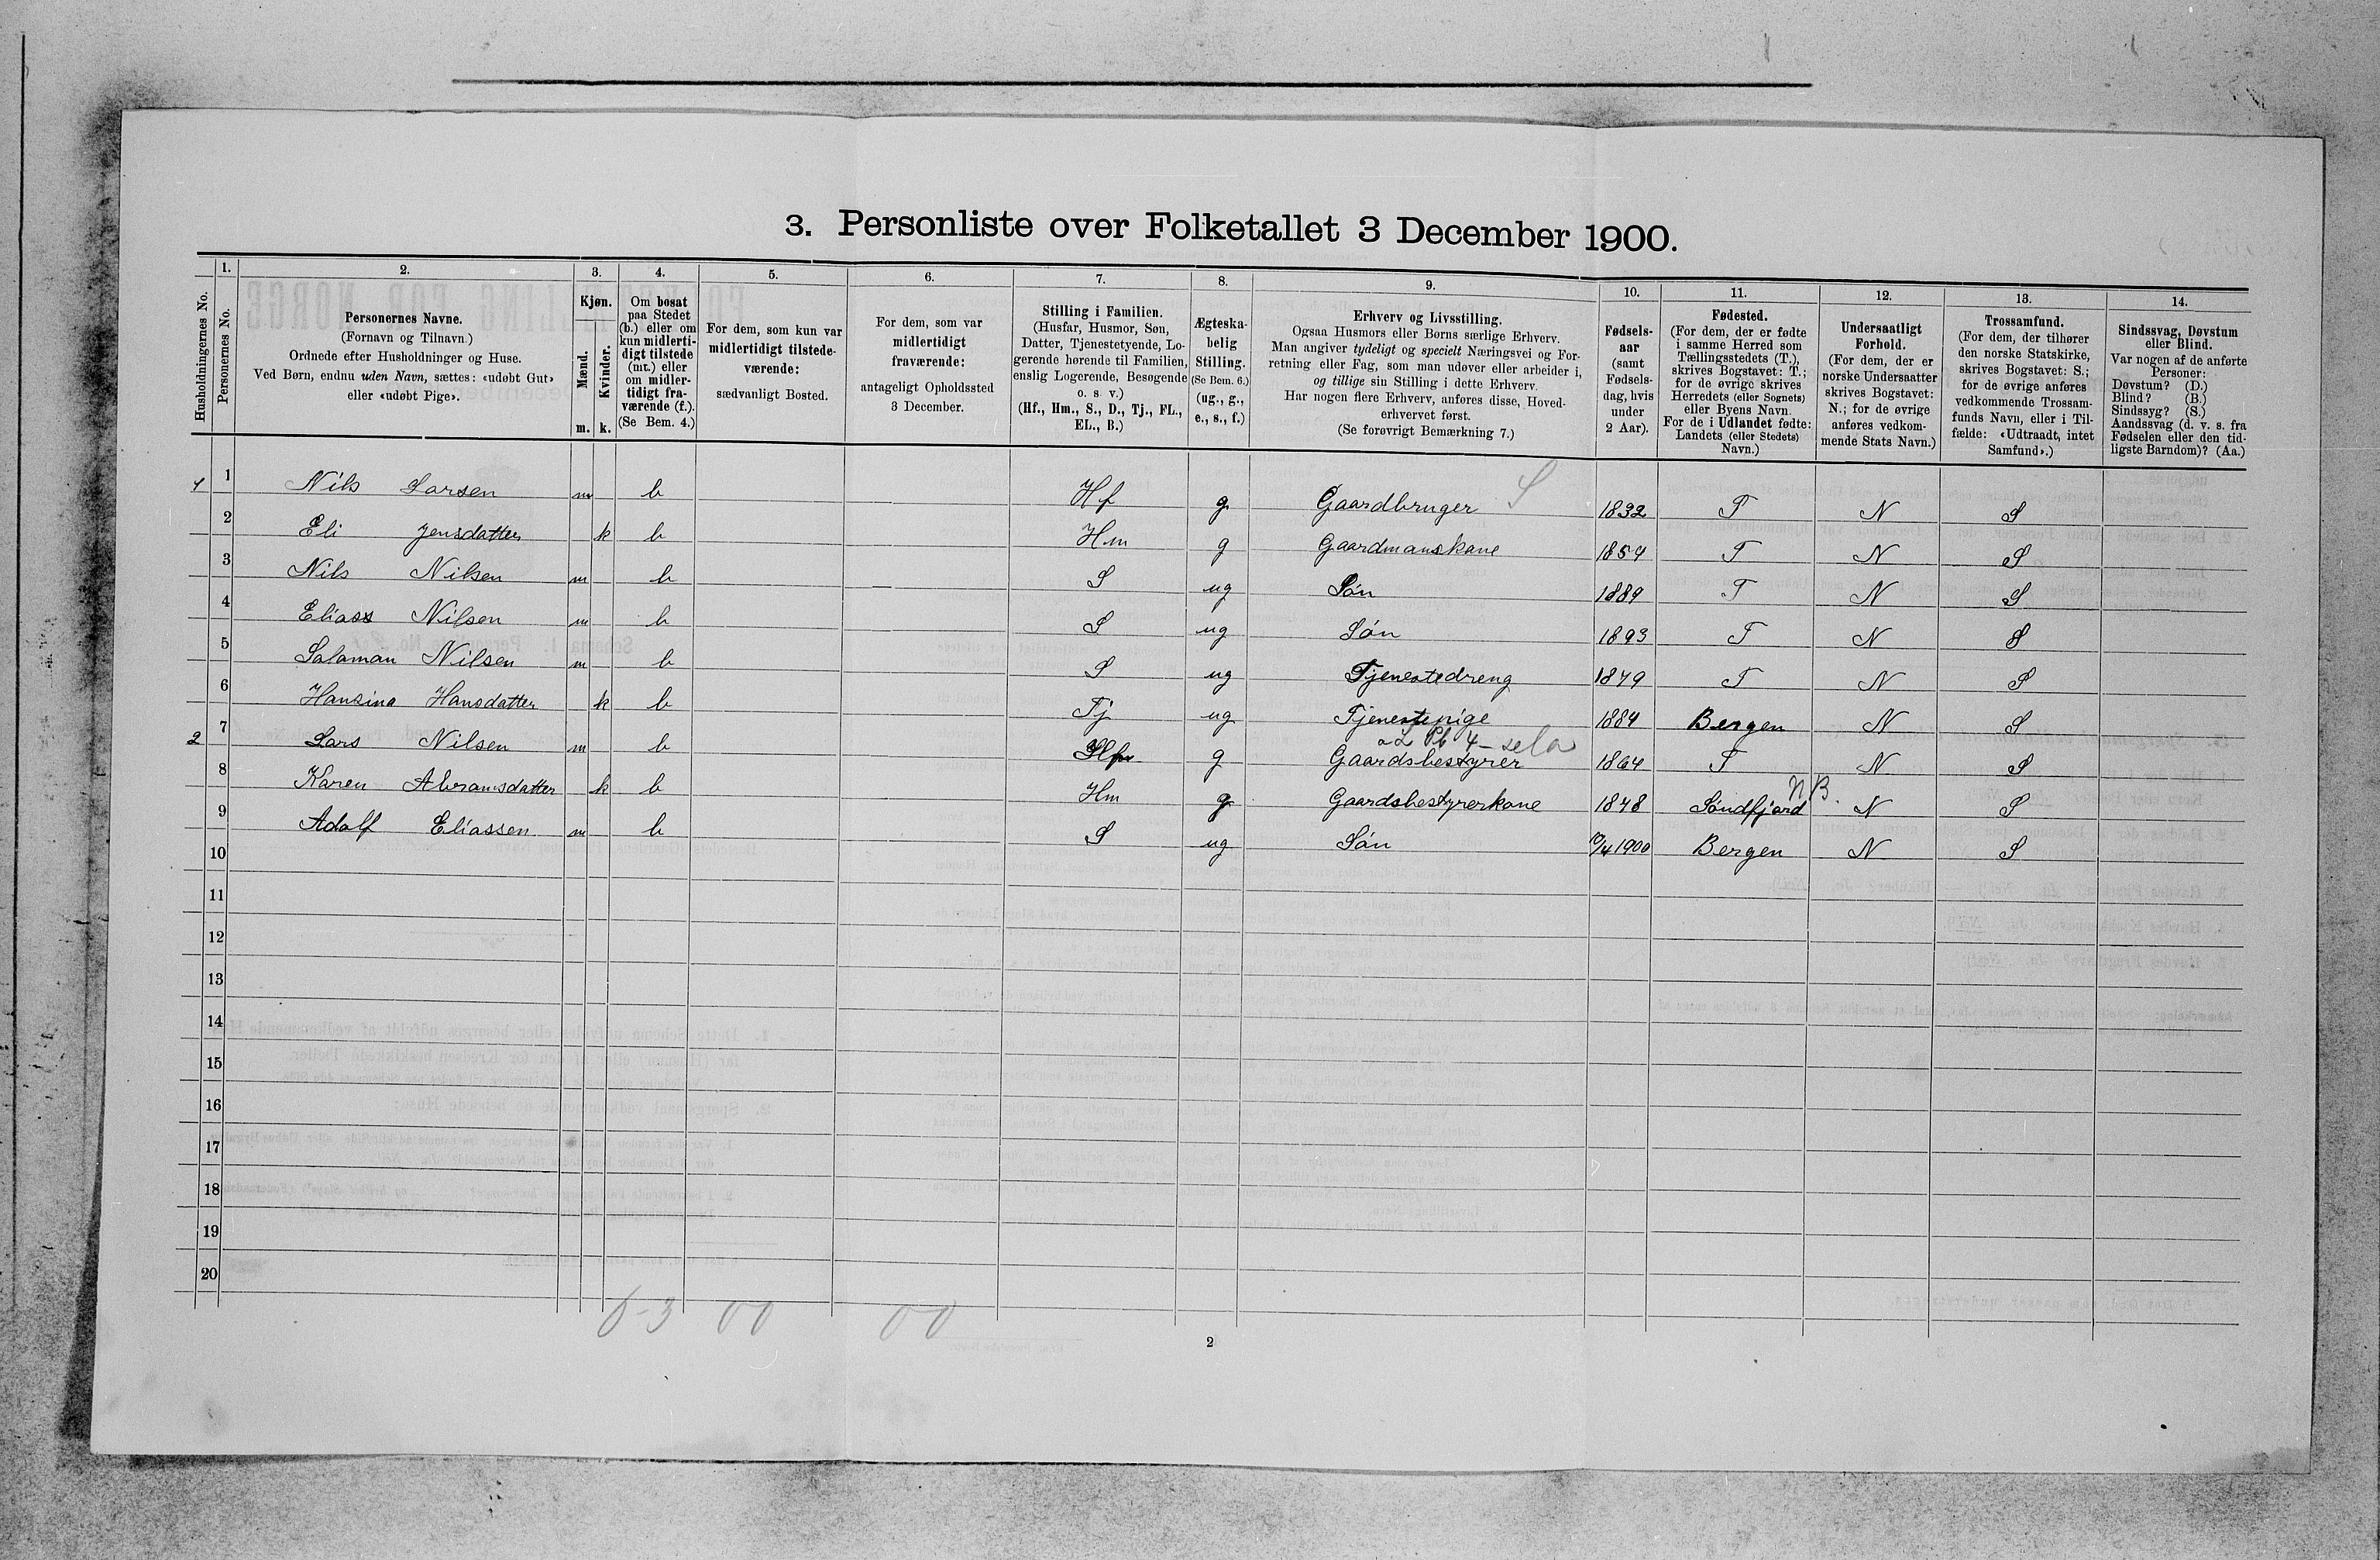 3. Personliste over Folketallet 3 December 1900.
1. 2. 3. 4. 5. 6. 7. 8. 9. 10. 11. 12. 13. 14.
Husholdningernes No.
Personernes No.
Personernes Navne.
(Fornavn og Tilnavn.)
Ordnede efter Husholdninger og Huse.
Ved Børn, endnu uden Navn, sættes: «udøbt Gut»
eller «udøbt Pige».
Kjøn.
Mænd.
Kvinder.
m. k.
Om bosat
paa Stedet
(b.) eller om
kun midlerti-
digt tilstede
(mt.) eller
om midler-
tidigt fra-
værende (f.).
(Se Bem. 4.)
For dem, som kun var
midlertidigt tilstede-
værende:
sædvanligt Bosted.
For dem, som var
midlertidigt
fraværende:
antageligt Opholdssted
3 December.
Stilling i Familien.
(Husfar, Husmor, Søn,
Datter, Tjenestetyende, Lo-
gerende hørende til Familien,
enslig Logerende, Besøgende
o. s. v.)
(Hf., Hm., S., D., Tj., FL.,
EL., B.)
Ægteska-
belig
Stilling.
(Se Bem. 6.)
(ug., g.,
e., s., f.)
Erhverv og Livsstilling.
Ogsaa Husmors eller Børns særlige Erhverv.
Man angiver tydeligt og specielt Næringsvei og For-
retning eller Fag, som man udøver eller arbeider i,
og tillige sin Stilling i dette Erhverv.
Har nogen flere Erhverv, anføres disse, Hoved-
erhvervet først.
(Se forøvrigt Bemærkning 7.)
Fødsels-
aar
(samt
Fødsels-
dag, hvis
under
2 Aar).
Fødested.
(For dem, der er fødte
i samme Herred som
Tællingsstedets (T.),
skrives Bogstavet: T.;
for de øvrige skrives
Herredets (eller Sognets)
eller Byens Navn.
For de i Udlandet fødte:
Landets (eller Stedets)
Navn.)
Undersaatligt
Forhold.
(For dem, der er
norske Undersaatter
skrives Bogstavet:
N.; for de øvrige
anføres vedkom-
mende Stats Navn.)
Trossamfund.
(For dem, der tilhører
den norske Statskirke,
skrives Bogstavet: S.;
for de øvrige anføres
vedkommende Trossam-
funds Navn, eller i Til-
fælde: «Udtraadt, intet
Samfund».)
Sindssvag, Døvstum
eller Blind.
Var nogen af de anførte
Personer:
Døvstum? (D.)
Blind? (B.)
Sindssyg? (S.)
Aandssvag (d. v. s. fra
Fødselen eller den tid-
ligste Barndom)? (Aa.)
1 1 Nils Larsen m b Hf g Gaardbruger S 1832 T N S
2 Eli Jensdatter k b Hm g Gaardmanskone 1854 T N S
3 Nils Nilsen m b S ug Søn 1889 T N S
4 Elias Nilsen m b S ug Søn 1893 T N S
5 Salaman Nilsen m b S ug Tjenestedreng 1879 T N S
6 Hansina Hansdatter k b Tj ug Tjenestepige 1884 Bergen N S
2 7 Lars Nilsen m b Hf g Gaardsbestyrer 1864 T N S
8 Karen Abramsdatter k b Hm g Gaardsbestyrerkone 1848 Søndfjord NB. N S
9 Adolf Eliassen m b S ug Søn /4 1900 Bergen N S
10
11
12
13
14
15
16
17
18
19
20
6-3 00 00
2